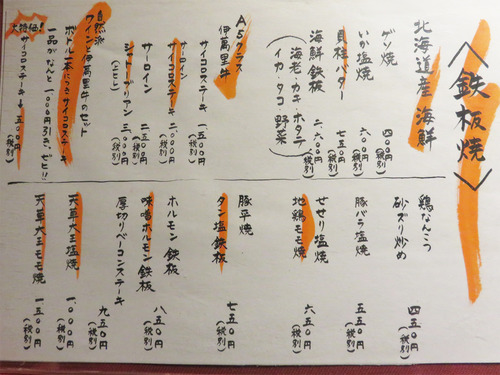 〈鉄板焼〉
北海道産 海鮮
ゲソ焼 四〇〇円(税別)
いか塩焼 六〇〇円(税別)
貝柱バター 七五〇円(税別)
海鮮鉄板 二、六〇〇円(税別)
(海老・カキ・ホタテ
イカ・タコ 野菜)
A5クラス
伊萬里牛
サイコロステーキ 一五〇〇円(税別)
サーロイン
サイコロステーキ 二、〇〇〇円(税別)
サーロイン 二五〇〇円(税別)
シャトーブリアン(ヒレ) 三、〇〇〇円(税別)
自然派
ワインと伊萬里牛のセット
ボトル一本につきサイコロステーキ
一品がなんと一、〇〇〇円引き、ゼヒ!!
大特価!
サイコロステーキ→五〇〇円(税別)
鶏なんこつ
砂ズリ炒め 四五〇円(税別)
豚バラ塩焼 五五〇円(税別)
せせり塩焼
地鶏モモ焼 六五〇円(税別)
豚平焼
タン塩鉄板 七五〇円(税別)
ホルモン鉄板
味噌ホルモン鉄板 八五〇円(税別)
厚切りベーコンステーキ 九五〇円(税別)
天草大王塩焼 一、〇〇〇円(税別)
天草大王モモ焼 一、五〇〇円(税別)